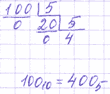 100 5
0 20 5
0 4
100₁₀ = 400,₅